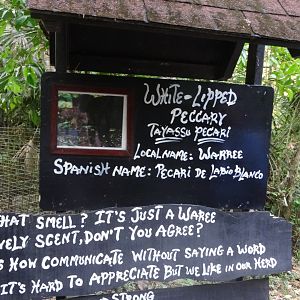 White-Lipped
Peccary
Tayassu Pecari
Local name: Warree
Spanish name: Pecari de Labio Blanco
What smell? It's just a Waree
Lovely scent, don't you agree?
's how communicate without saying a word
It's hard to appreciate but we like in our herd
strong